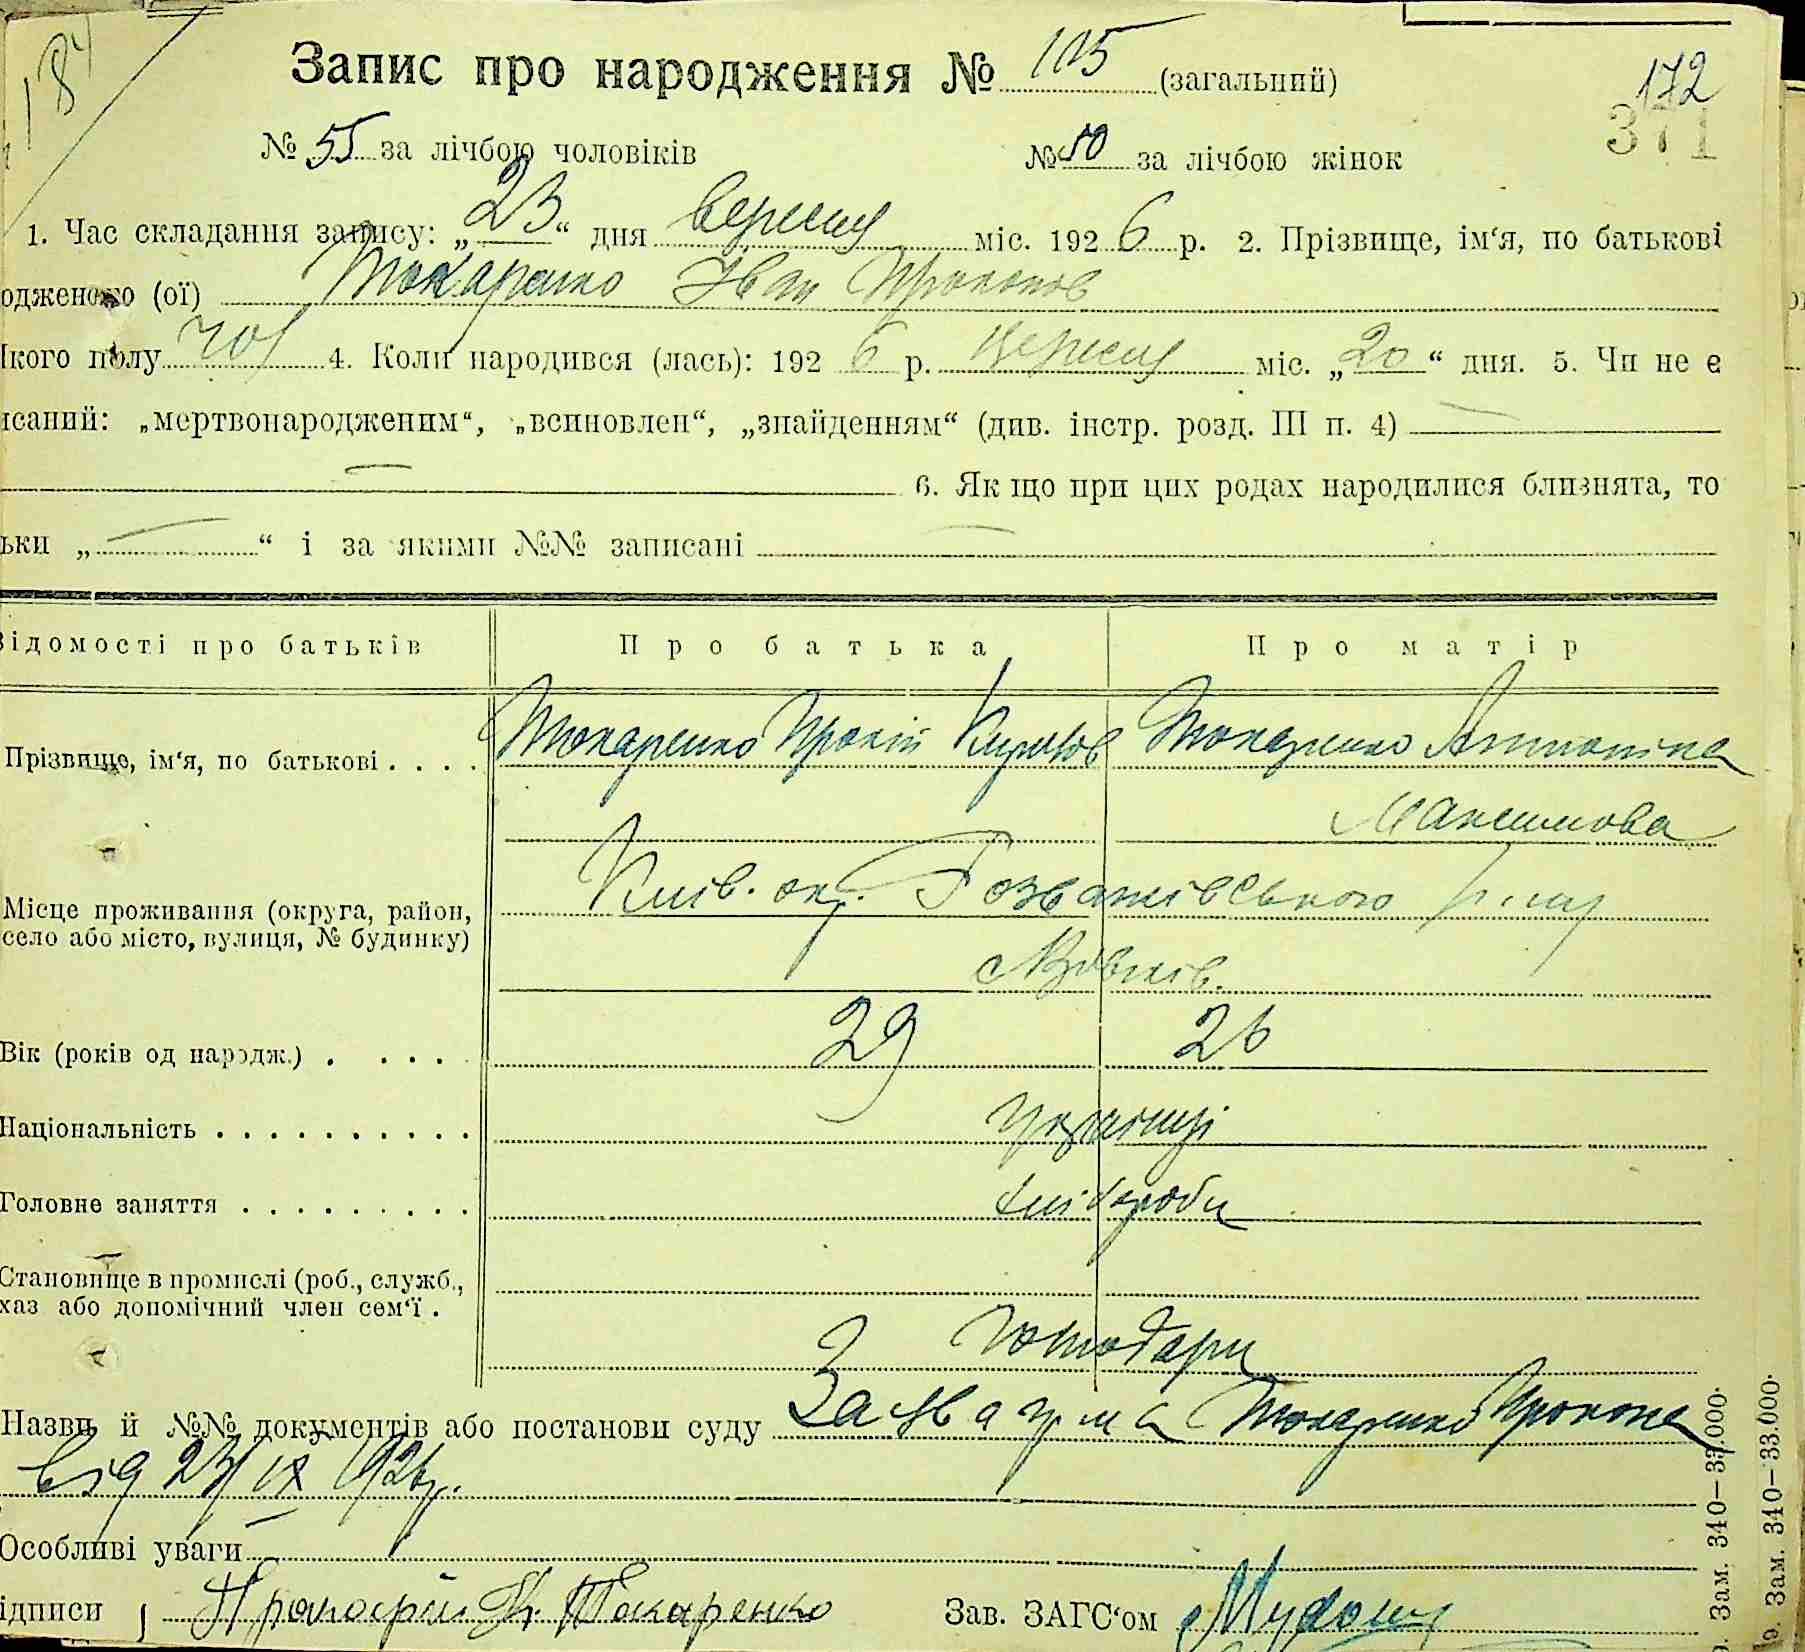 184
172
371
Запис про народження № 105 (загальний)
№ 55 за лічбою чоловіків № 50 за лічбою жінок
1. Час складання запису: „23“ дня вересня міс. 1926 р. 2. Прізвище, ім‘я, по батькові
одженого (ої) Токаренко Іван Прокопов
якого полу чол 4. Коли народився (лась): 1926 р. вересня міс. „20“ дня. 5. Чи не є
исаний: „мертвонародженим“, „всиновлен“, „знайденням“ (див. інстр. розд. III п. 4) —
— 6. Якщо при цих родах народилися близнята, то
ьки „—“ і за якими №№ записані —
Відомості про батьків Про батька Про матір
Прізвище, ім‘я, по батькові . . . . Токаренко Прокіп Токаренко Антоніна
Максимова
Місце проживання (округа, район, Київ. окр. Розважівського р-ну
село або місто, вулиця, № будинку)
Вік (років од народж.) . . . . 29 26
Національність . . . . . . . . . . Українці
Головне заняття . . . . . . . . . хлібороби
Становище в промислі (роб., служб.,
хаз або допомічний член сем‘ї .
Господари
Назви й №№ документів або постанови суду Заява гр-на Токаренко Прокопа
від 23/IX 1926р.
Особливі уваги —
ідписи Токаренко Зав. ЗАГС‘ом
Зам. 340–33.000.
Зам. 340–33.000.